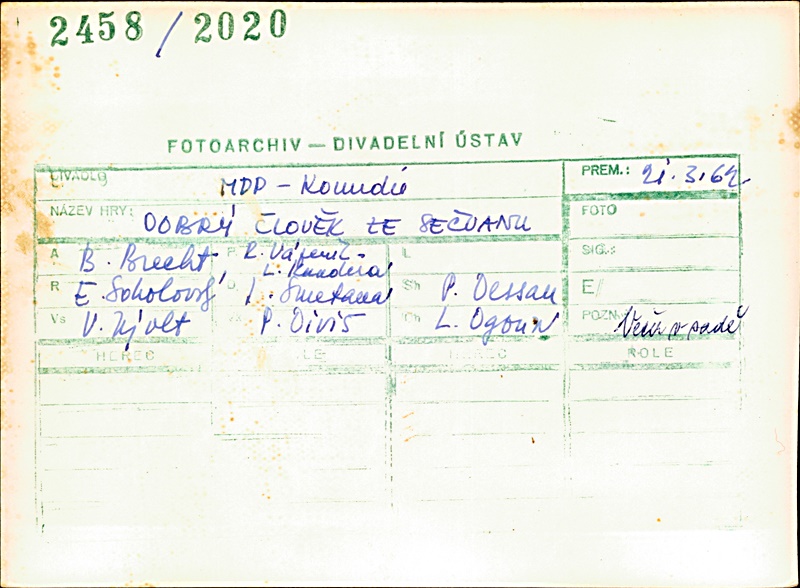 2458 / 2020
FOTOARCHIV — DIVADELNÍ ÚSTAV
DIVADLO MDP - Komedie PREM.: 21.3.62.
NÁZEV HRY: DOBRÝ ČLOVĚK ZE SEČUANU FOTO
A B. Brecht, P R. Vápeník - L. Kundera L SIG.:
R E. Sokolovský D L. Smetana Sh P. Dessau E/
Vs V. Nývlt P. Diviš Ch L. Ogoun POZN.
HEREC ROLE HEREC ROLE